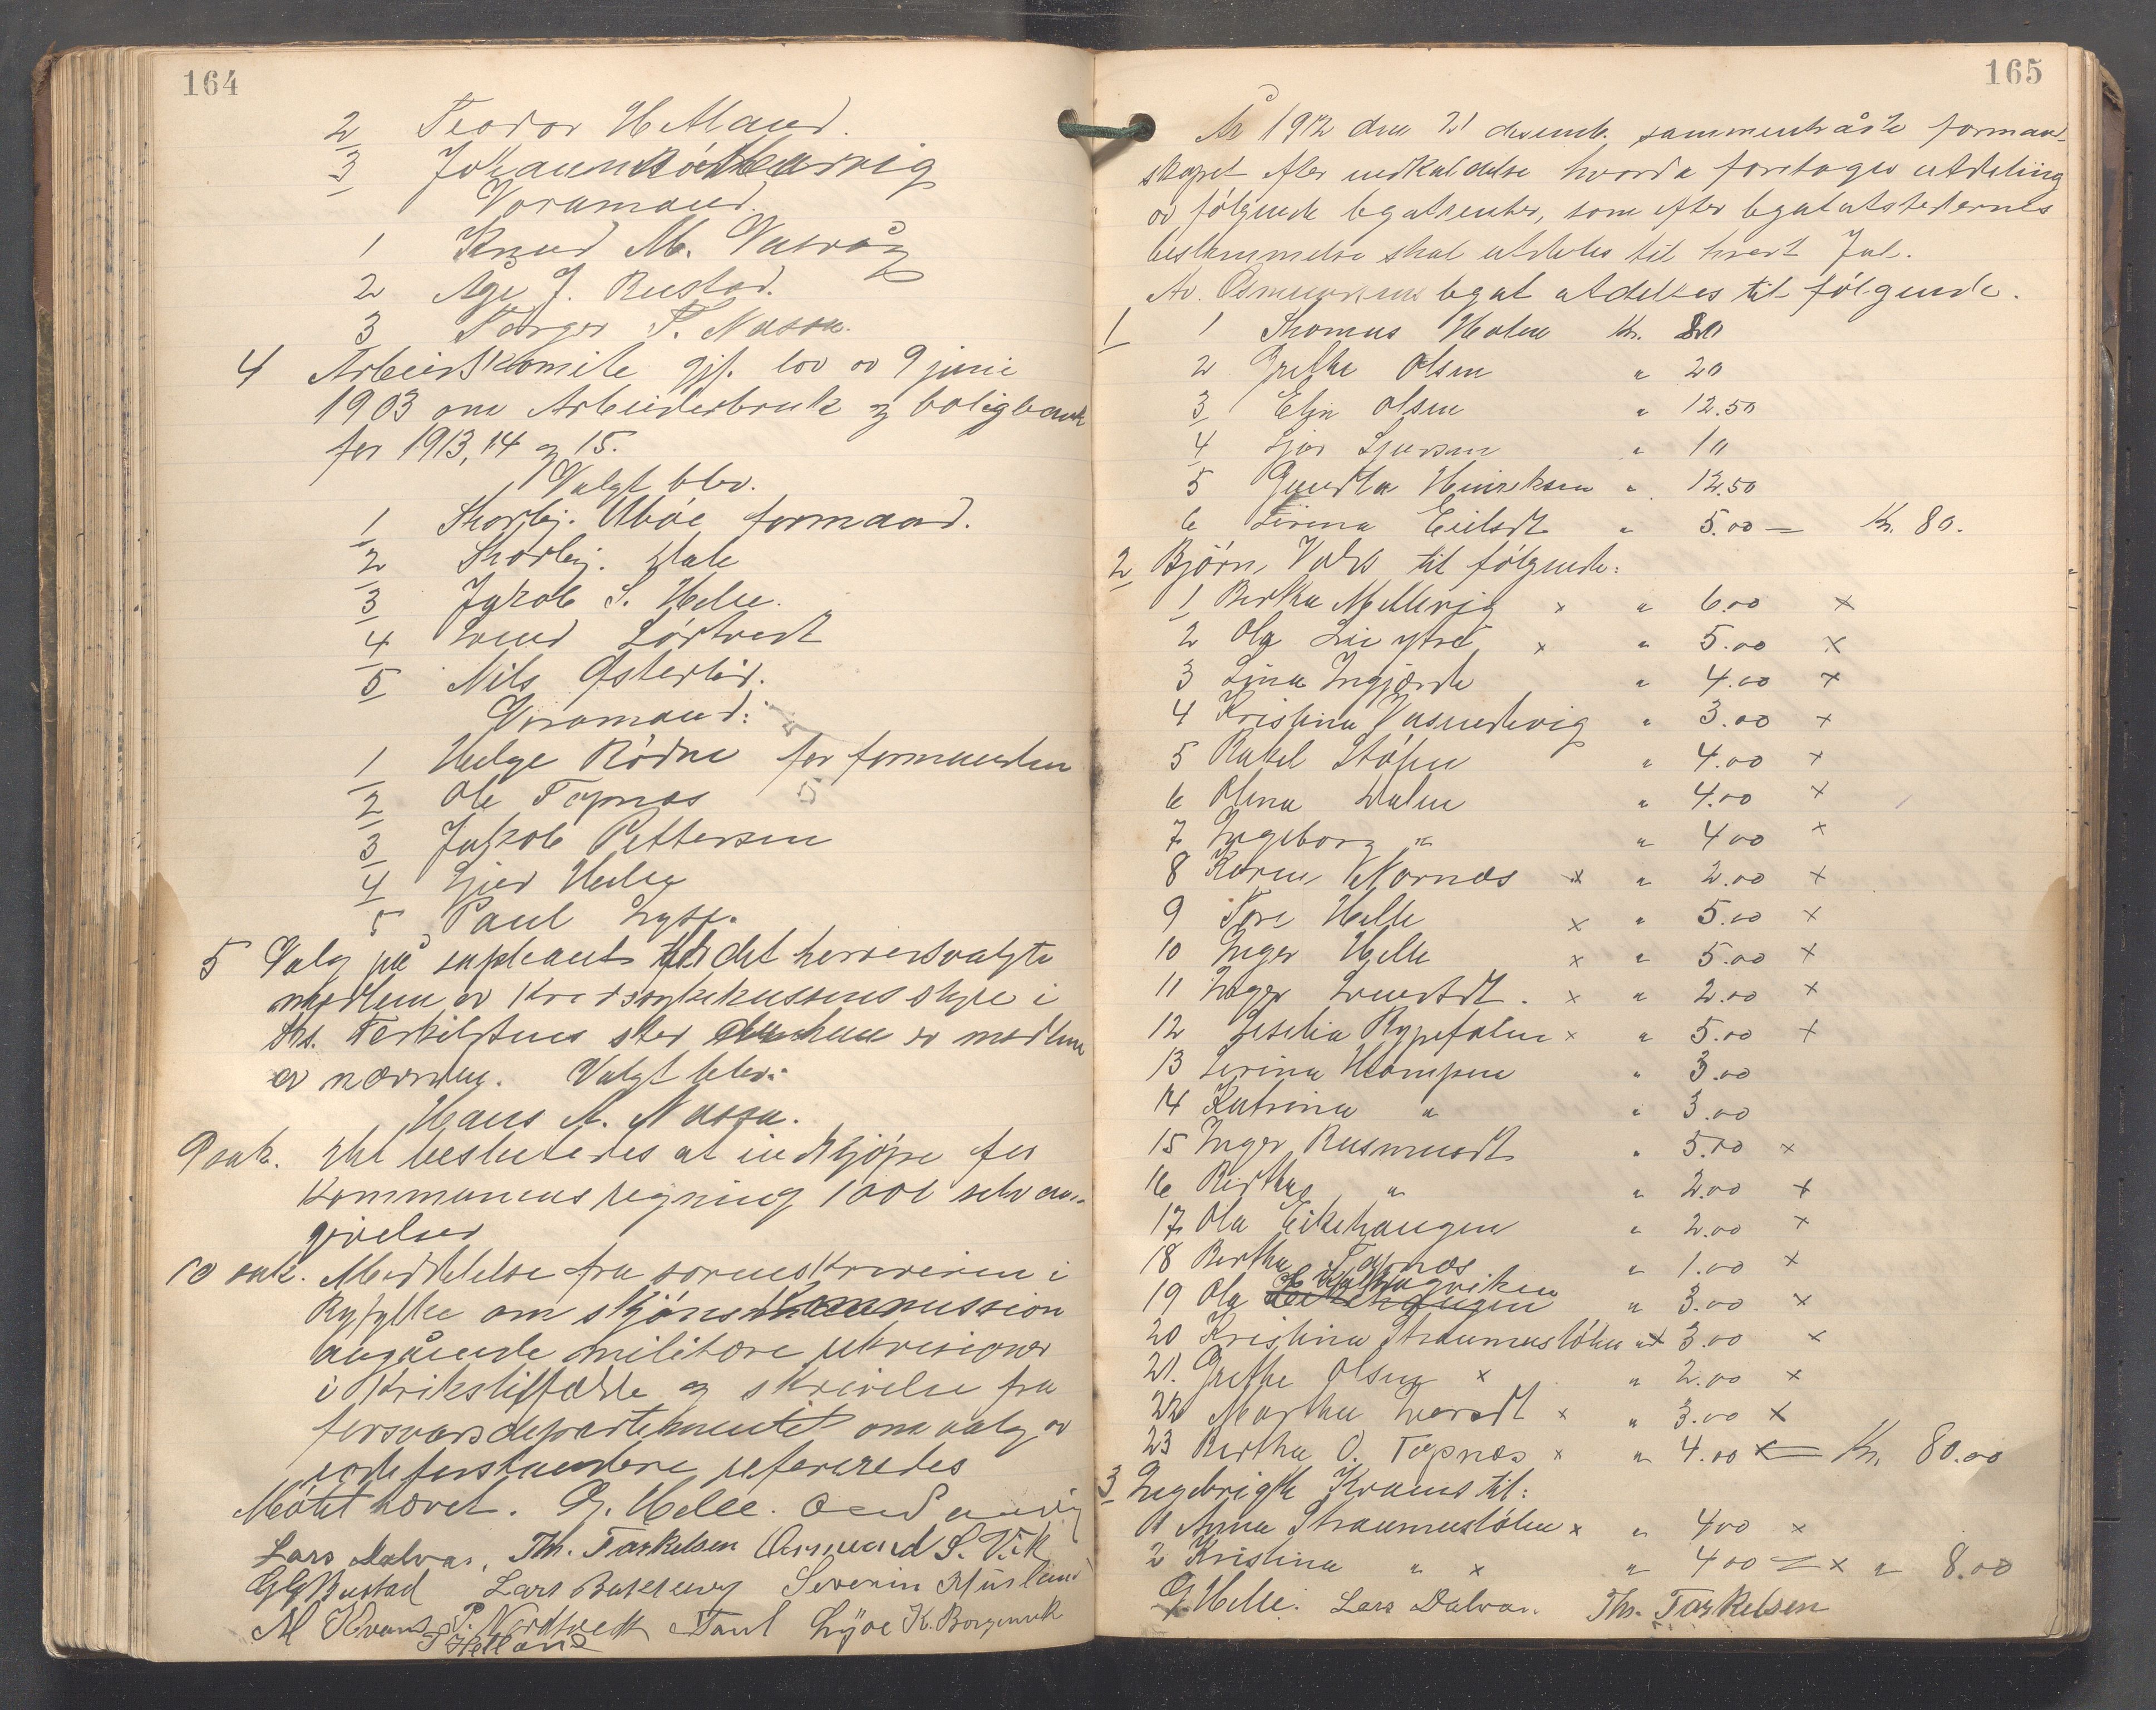 164
2 Teodor Hetland.
3 Johannes
Varamænd.
1 Knud M. Vasvåg
2 Åge J. Rustad.
3 Torger T. Nassa.
4 Arbeiderkomite gjf. lov av 9 juni
1903 om Arbeiderbruk og boligbank
for 1913, 14 og 15.
Valgt blev.
1 Thorbj. Ubøe formand.
2 Thorbj. Hale
3 Jakob S. Helle.
4 Svend Lørtvedt
5 Nils Østerhus.
Varamænd:
1 Helge Rødne for formanden
2 Ole Tapnæs
3 Jakob Pettersen
4 Sjur Helle
5 Paul Lysø.
5 Valg på supleant til det herredsvalgte
medlem av Kredssykekassens styre i
Ths. Torkelsens sted hun er medlem
av nævnden. Valgt blev:
Hans A. Nassa.
9 sak. Det besluttedes at indkjøpe for
Kommunens regning 1001 selvan-
givelser
10 sak. Meddelelse fra sorenskriveren i
Ryfylke om skjønskommission
angående militære utvisioner
i krikstilfælde og skrivelse fra
forsvarsdepartementet om valg av
rodeforstandere refereredes
Møtet hævet. G. Helle.
Lars Dalva. Th. Torkelsen Osmund S. Vik
G G Rustad Lars Bakkevig Severin
M Kvamen P. Nordtvedt Paul Lysøe K. Borgenvik
T Hetland
165
År 1912 den 21 desemb. sammentråte forman-
skapet efter indkaldelse hvorda foretoges utdeling
av følgende legatrenter, som efter legatutstedernes
bestemmelse skal utdeles til hvert Jul.
Av. Osmundsens legat utdeltes til følgende.
1 1 Thomas Holen Kr. 20
2 Grethe Olsen " 20
3 Elin Olsen " 12.50
4 Sjur Sjursen " 10
5 Gundla Heinreksen " 12.50
6 Serina Eieledt " 5.00 — Kr. 80.
2 Bjørn Vaks til følgende:
1 Bertha Mellevig × " 6.00 ×
2 Ola Lie ytre × " 5.00 ×
3 Lina Ingjerde " 4.00 ×
4 Kristina Vasendevig " 3.00 ×
5 Rakel Støfen " 4.00 ×
6 Olena Dalen " 4.00 ×
7 Ingeborg " " 4 00 ×
8 Karen Nornæs × " 2.00 ×
9 Tore Helle × " 5.00 ×
10 Inger Helle × " 5.00 ×
11 Inger . × " 2.00 ×
12 Seselia Rypefalen × " 5.00 ×
13 Serina Hompen " 3.00
14 Katrina " " 3.00
15 Inger Rusmundt " 5.00 ×
16 Bertha " " 2.00 ×
17 Ola Eikehaugen " 2.00 ×
18 Bertha Tapnæs " 1.00 ×
19 Ola Eikehaugen " 3.00 ×
20 Kristina Straumusløken " × 3.00 ×
21. Grethe Olsen × " 2.00 ×
22 Martha × " 3.00 ×
23 Bertha O. Tapnæs × " 4.00 × — Kr. 80.00
3 Ingebrigth Krams til:
1 Anna Straumusløken × " 4 00 ×
2 Kristina " × " 4 00 — × " 8.00
G Helle. Lars Dalva. Th. Torkelsen